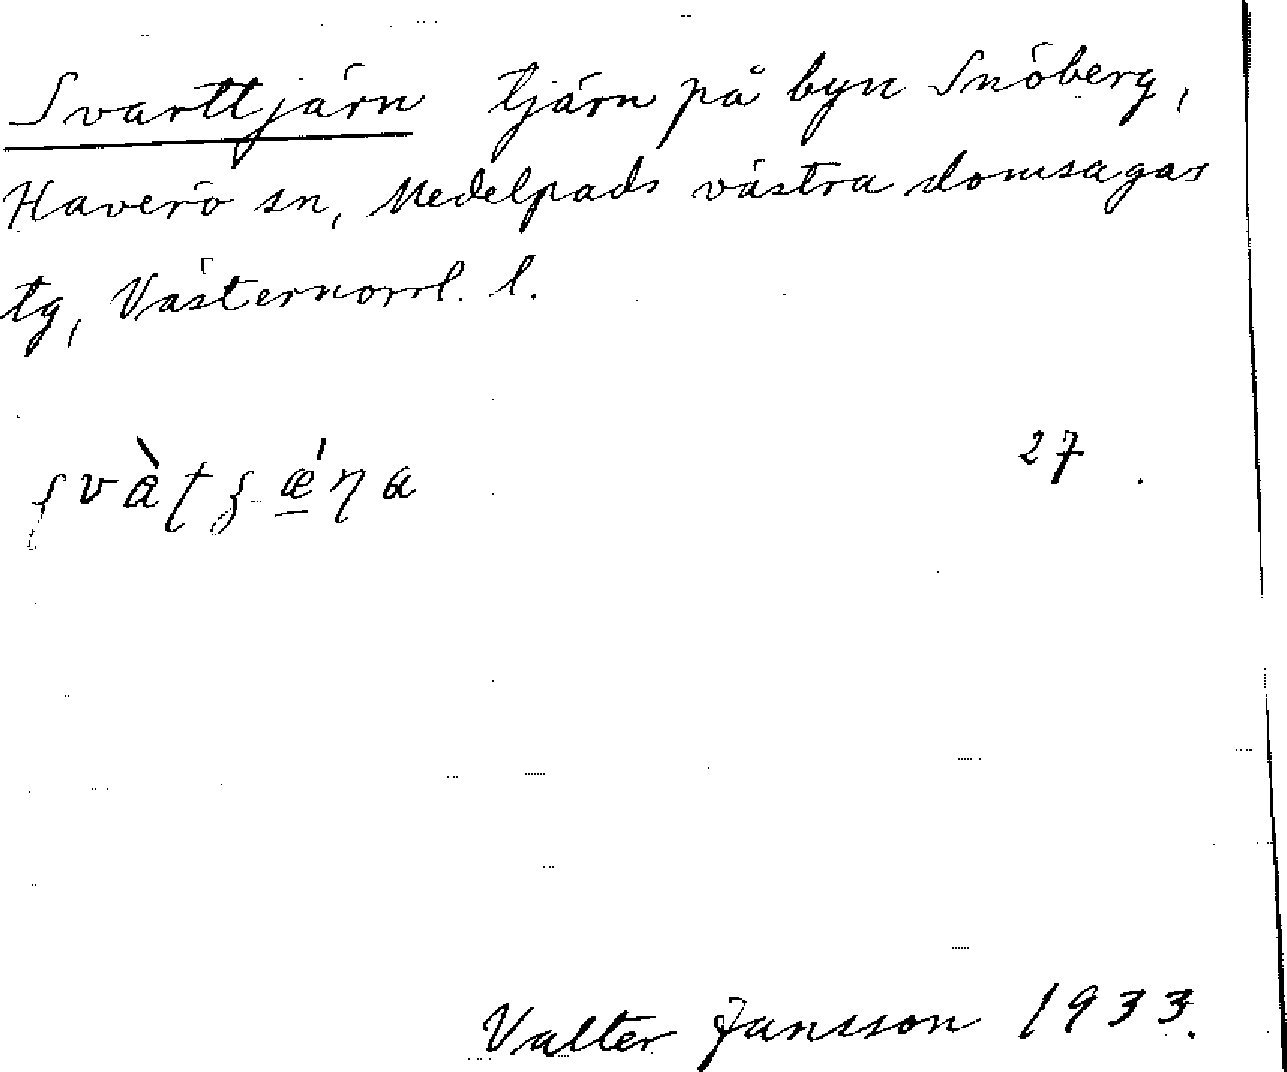 Svarttjärn tjärn på byn Snöberg,
Haverö sn, Medelpads västra domsagas
tg, Västernorrl. l.
27
Valter Jansson 1933.